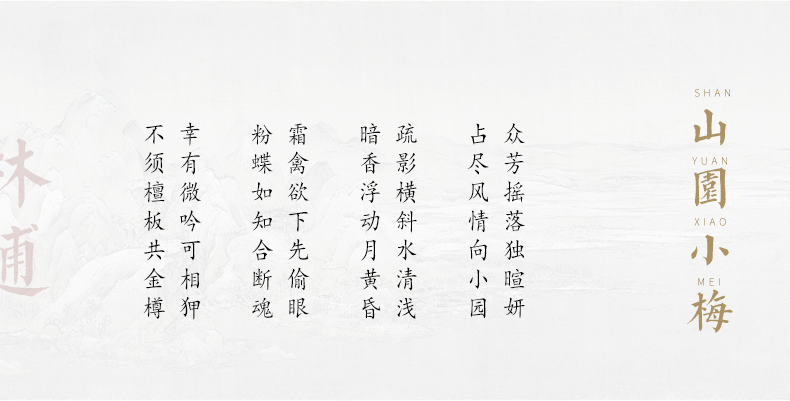 SHAN
山
YUAN
園
XIAO
小
MEI
梅
众芳摇落独暄妍
占尽风情向小园
疏影横斜水清浅
暗香浮动月黄昏
霜禽欲下先偷眼
粉蝶如知合断魂
幸有微吟可相狎
不须檀板共金樽